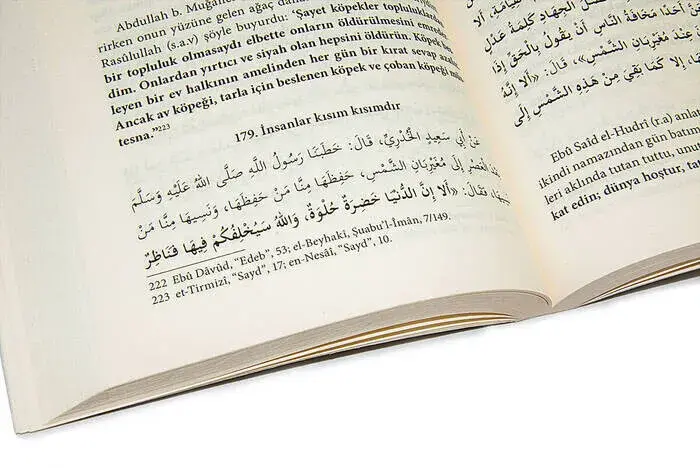 Abdullah b. Muğaffel
rirken onun yüzüne gelen ağaç
Rasûlullah (s.a.v) şöyle buyurdu: ‘Şayet köpekler topluluklardan
bir topluluk olmasaydı elbette onların öldürülmesini emreder
dim. Onlardan yırtıcı ve siyah olan hepsini öldürün. Köpek
leyen bir ev halkının amelinden her gün bir kırat sevap
Ancak av köpeği, tarla için beslenen köpek ve çoban köpeği
tesna.”223
179. İnsanlar kısım kısımdır
عَنْ أَبِي سَعِيدٍ الْخُدْرِيِّ، قَالَ: خَطَبَنَا رَسُولُ اللَّهِ صَلَّى اللهُ عَلَيْهِ وَسَلَّمَ
الْعَصْرِ إِلَى مُغَيْرِبَانِ الشَّمْسِ، حَفِظَهَا مِنَّا مَنْ حَفِظَهَا، وَنَسِيَهَا مِنَّا مَنْ
فَقَالَ: «أَلَا إِنَّ الدُّنْيَا خَضِرَةٌ حُلْوَةٌ، وَاللهُ سَيُخْلِفُكُمْ فِيهَا فَنَاظِرٌ
222 Ebû Dâvûd, “Edeb”, 53; el-Beyhakî, Şuabu’l-Îmân, 7/149.
223 et-Tirmizî, “Sayd”, 17; en-Nesâî, “Sayd”, 10.
أَلَا وَإِنَّ أَفْضَلَ الْجِهَادِ كَلِمَةُ عَدْلٍ
أَحَدًا مَخَافَةُ النَّاسِ أَنْ يَقُولَ بِالْحَقِّ إِذَا
عِنْدَ مُغَيْرِبَانِ الشَّمْسِ»، قَالَ: «أَلَا إِنَّهُ
إِلَّا كَمَا بَقِيَ مِنْ هَذِهِ الشَّمْسِ إِلَى
Ebû Saîd el-Hudrî (r.a) anlat
ikindi namazından gün batı
leri aklında tutan tuttu, unut
kat edin; dünya hoştur, ta